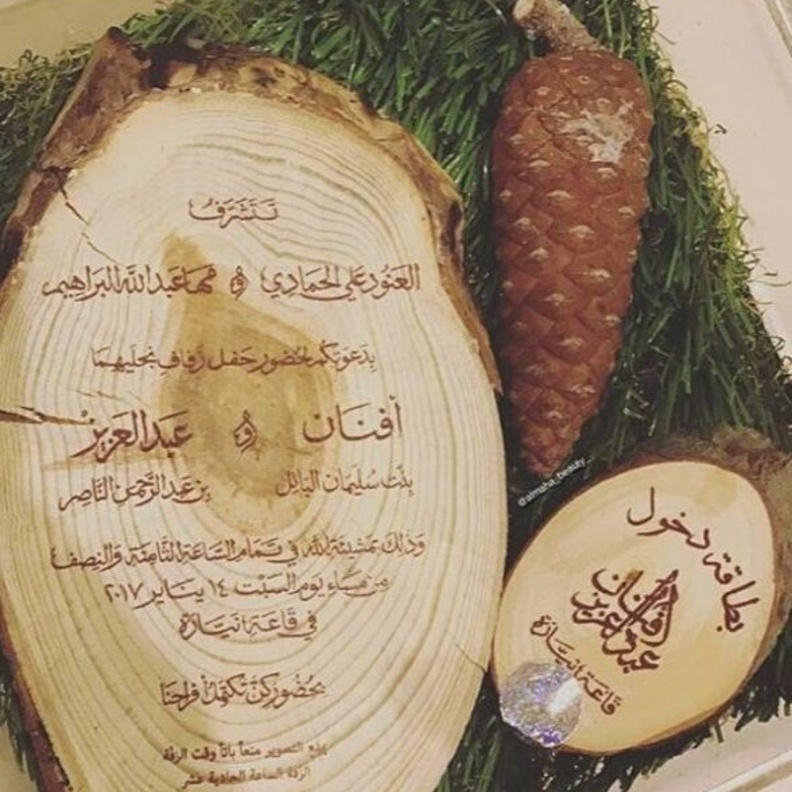 تتشرف
العنود علي الحمادي و مها عبدالله البراهيم
بدعوتكم لحضور حفل زفاف نجليهما
أفنان و عبدالعزيز
بنت سليمان اليايل بن عبدالرحمن الناصر
وذلك بمشيئة الله في تمام الساعة الثامنة والنصف
من مساء يوم السبت ١٤ يناير ٢٠١٧
في قاعة انيارة
بحضوركن تكتمل افراحنا
يمنع التصوير منعاً باتاً وقت الزفة
الزفة الساعة الحادية عشر
@almaha_beauty
بطاقة دخول
أفنان
عبدالعزيز
قاعة انيارة